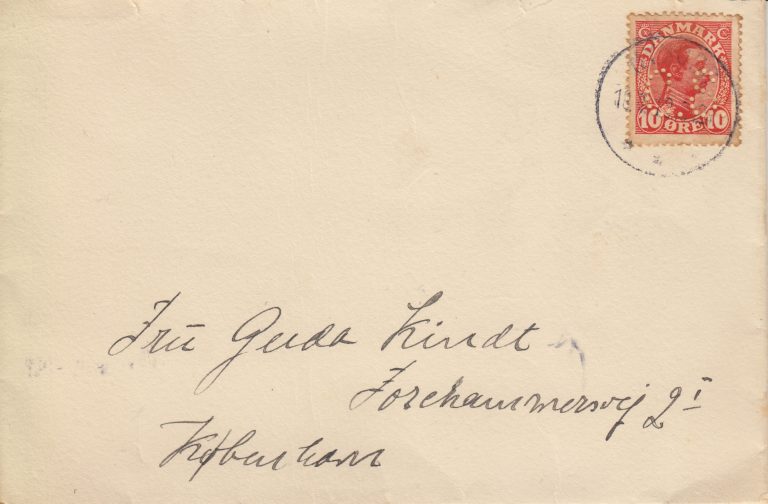 DANMARK
10 ØRE 10
Frū Gerda Kindt
Forchammersvej 2ᴵ
København